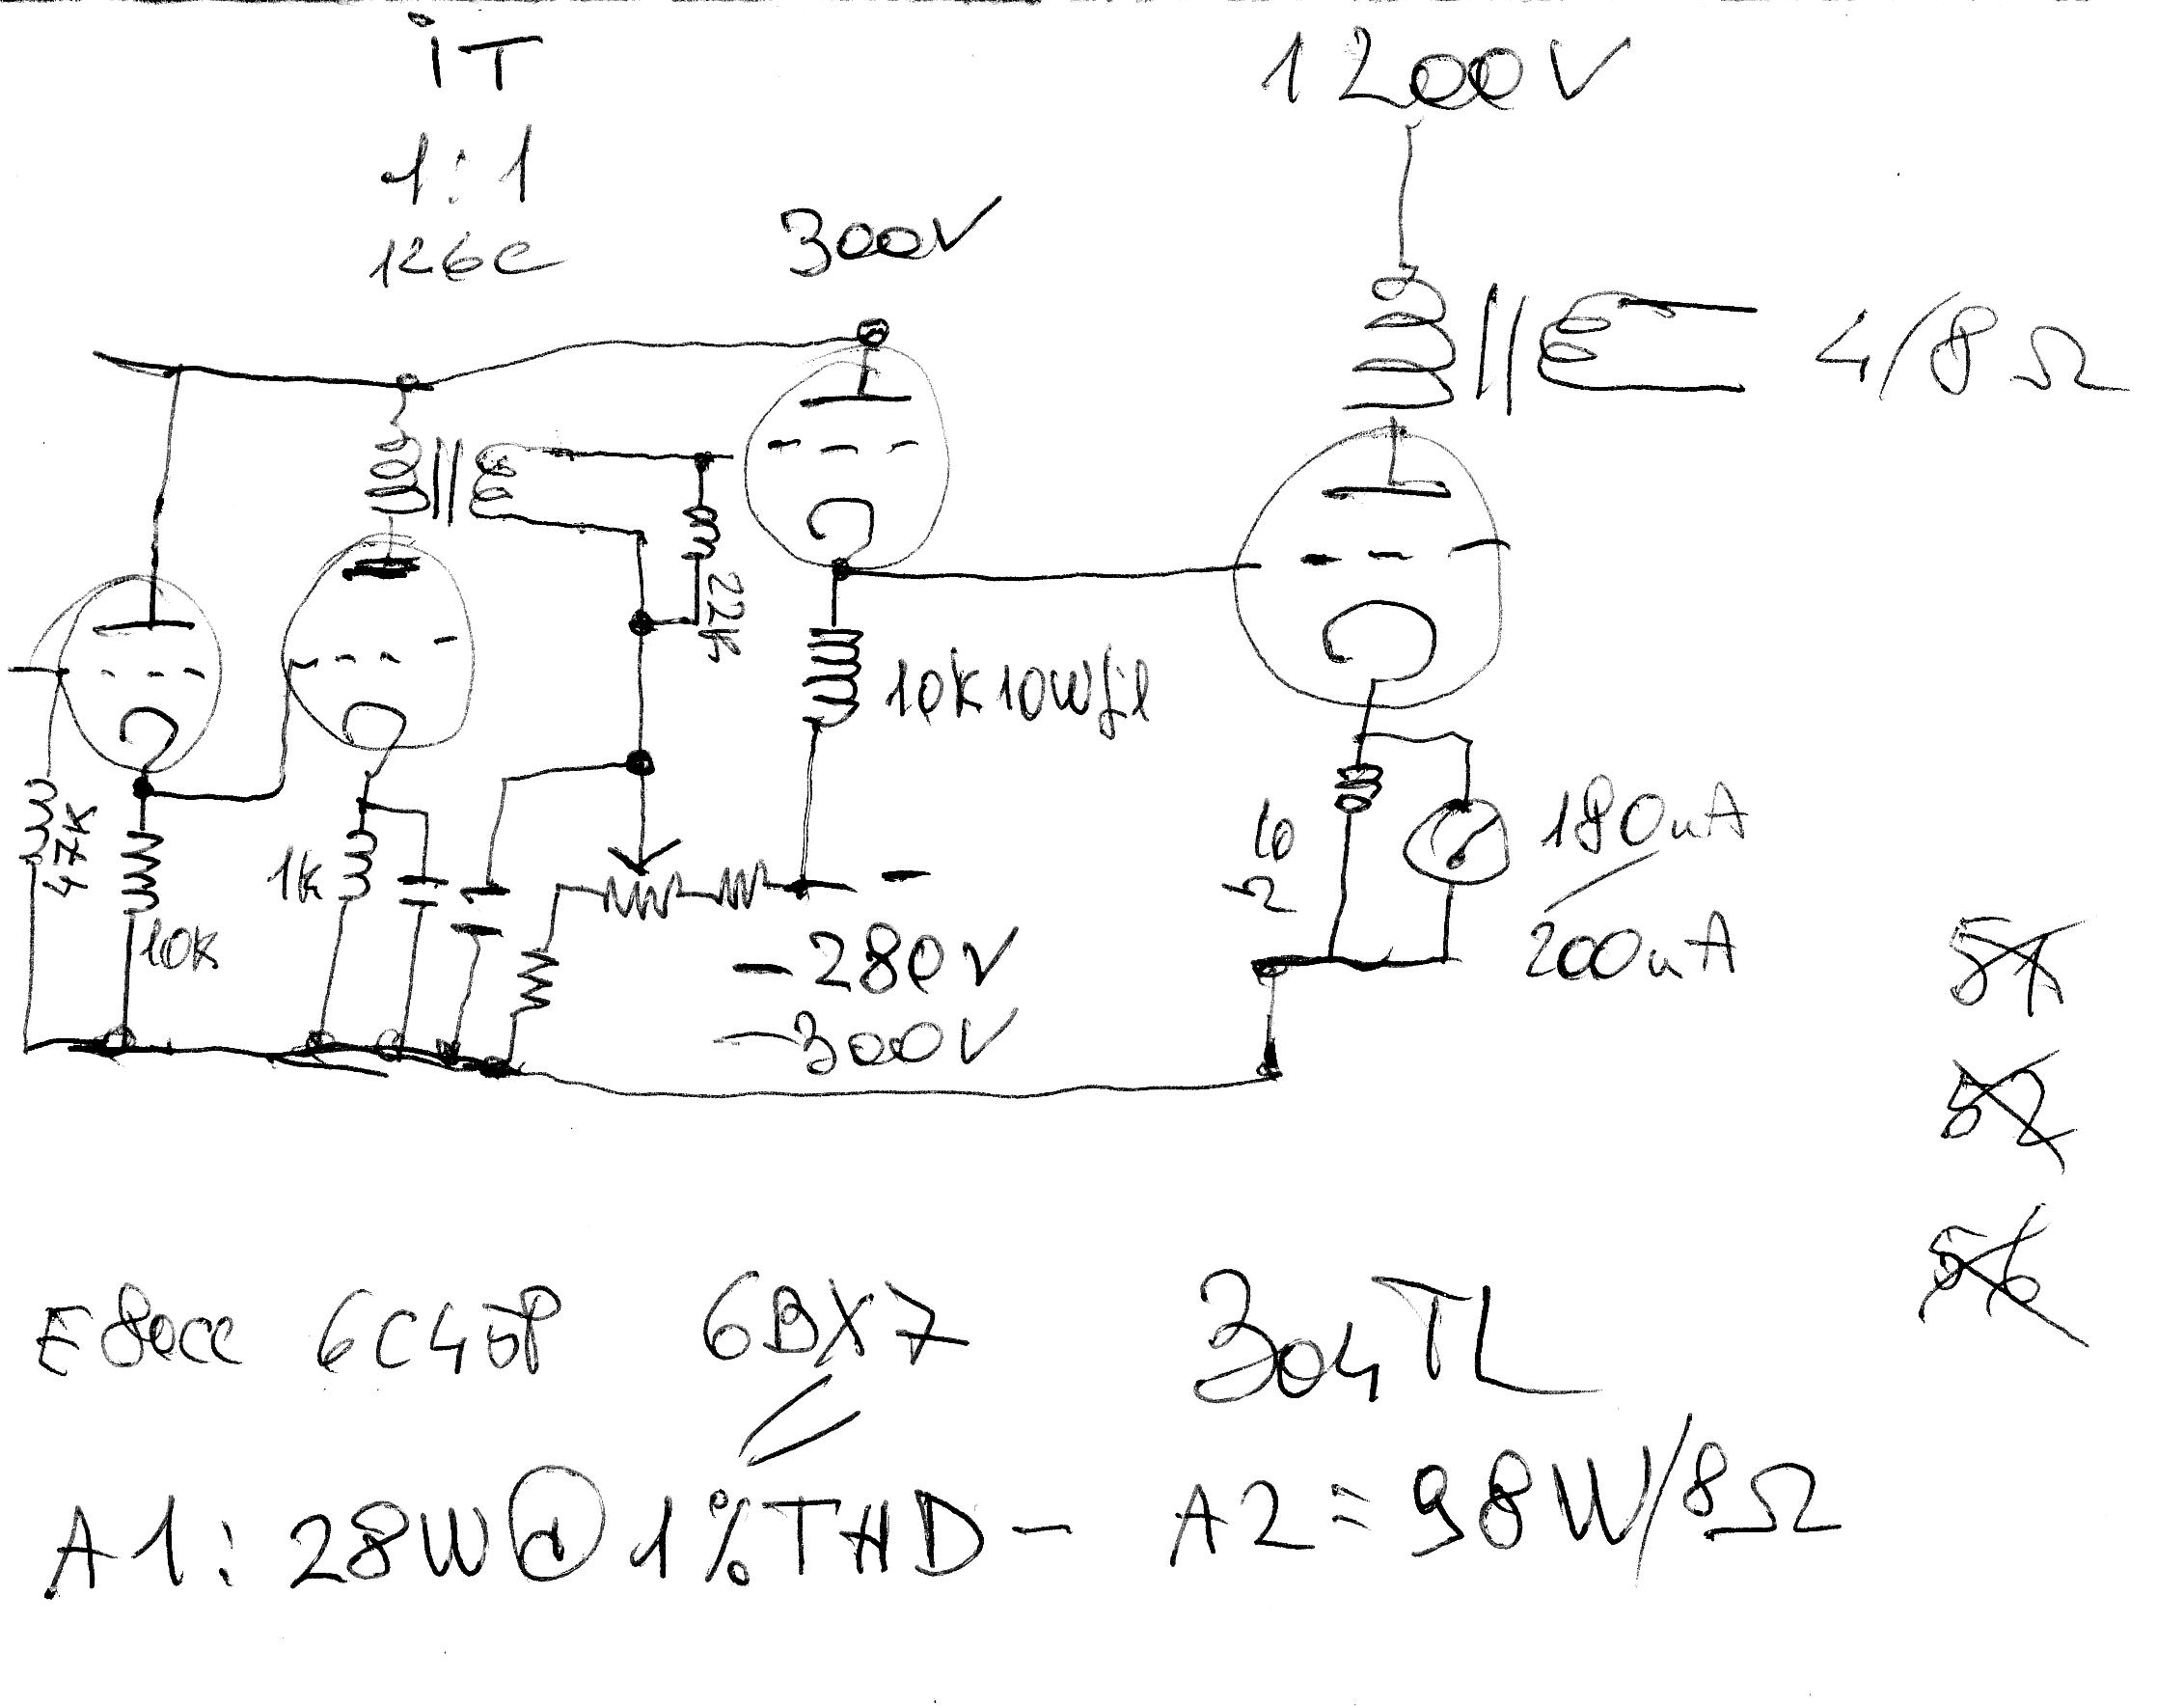 iT
1:1
126C
300V
1200V
4/8Ω
22K
10K10W
47K
10K
1K
-
-280V
-300V
180uA
200uA
51
52
56
E80CC 6C45P 6BX7 304TL
A1: 28W@1%THD- A2=98W/8Ω